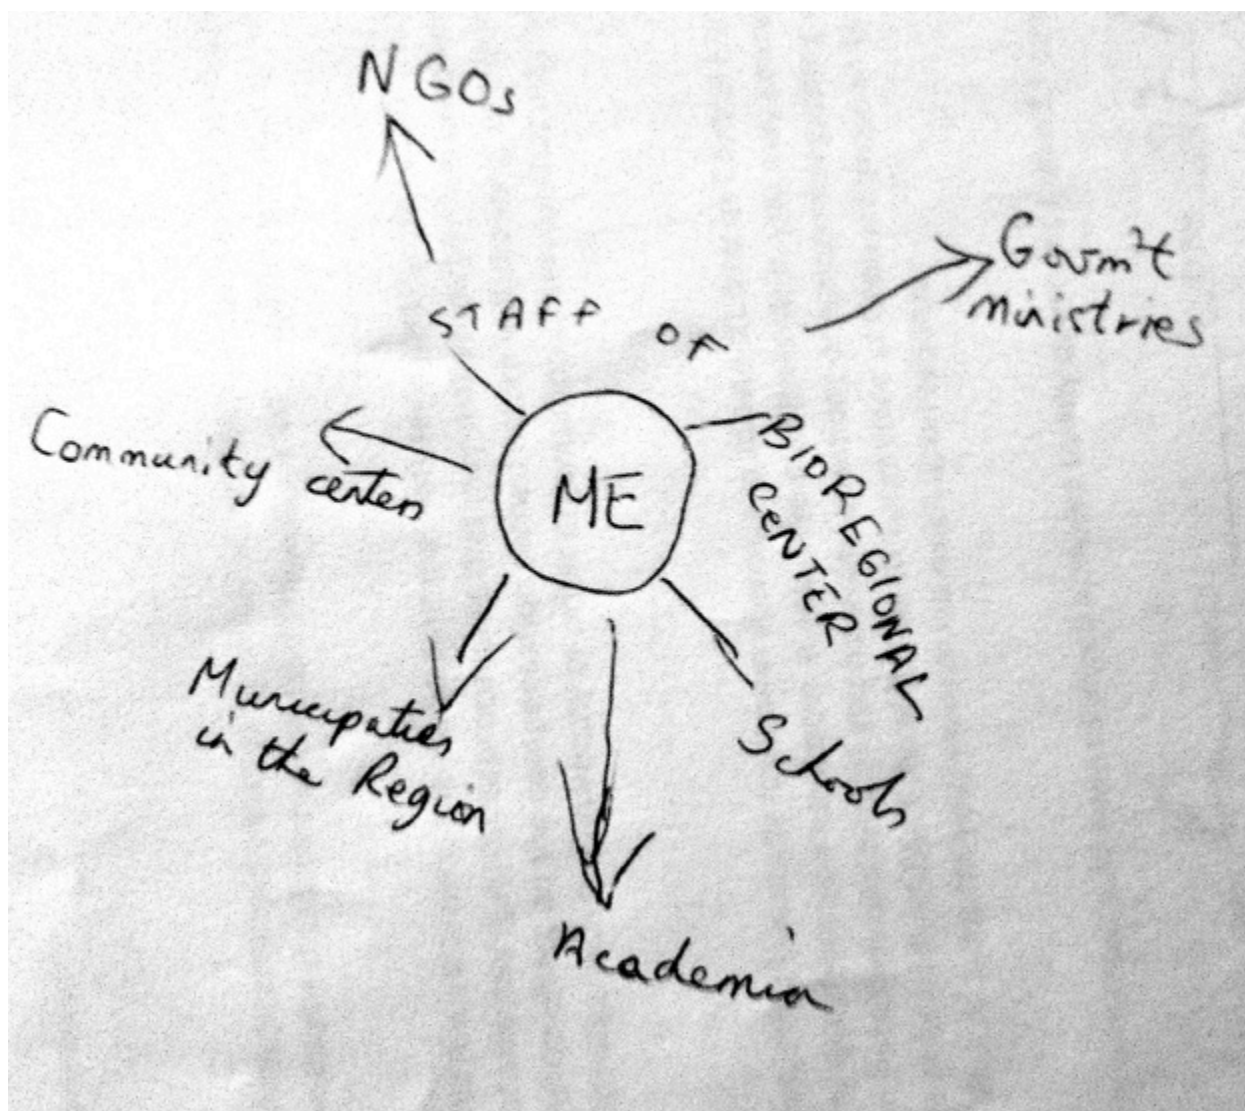 NGOs
Govm't
ministries
STAFF OF
BIOREGIONAL
CENTER
Community centers
ME
Municipaties
in the Region
Schools
Academia